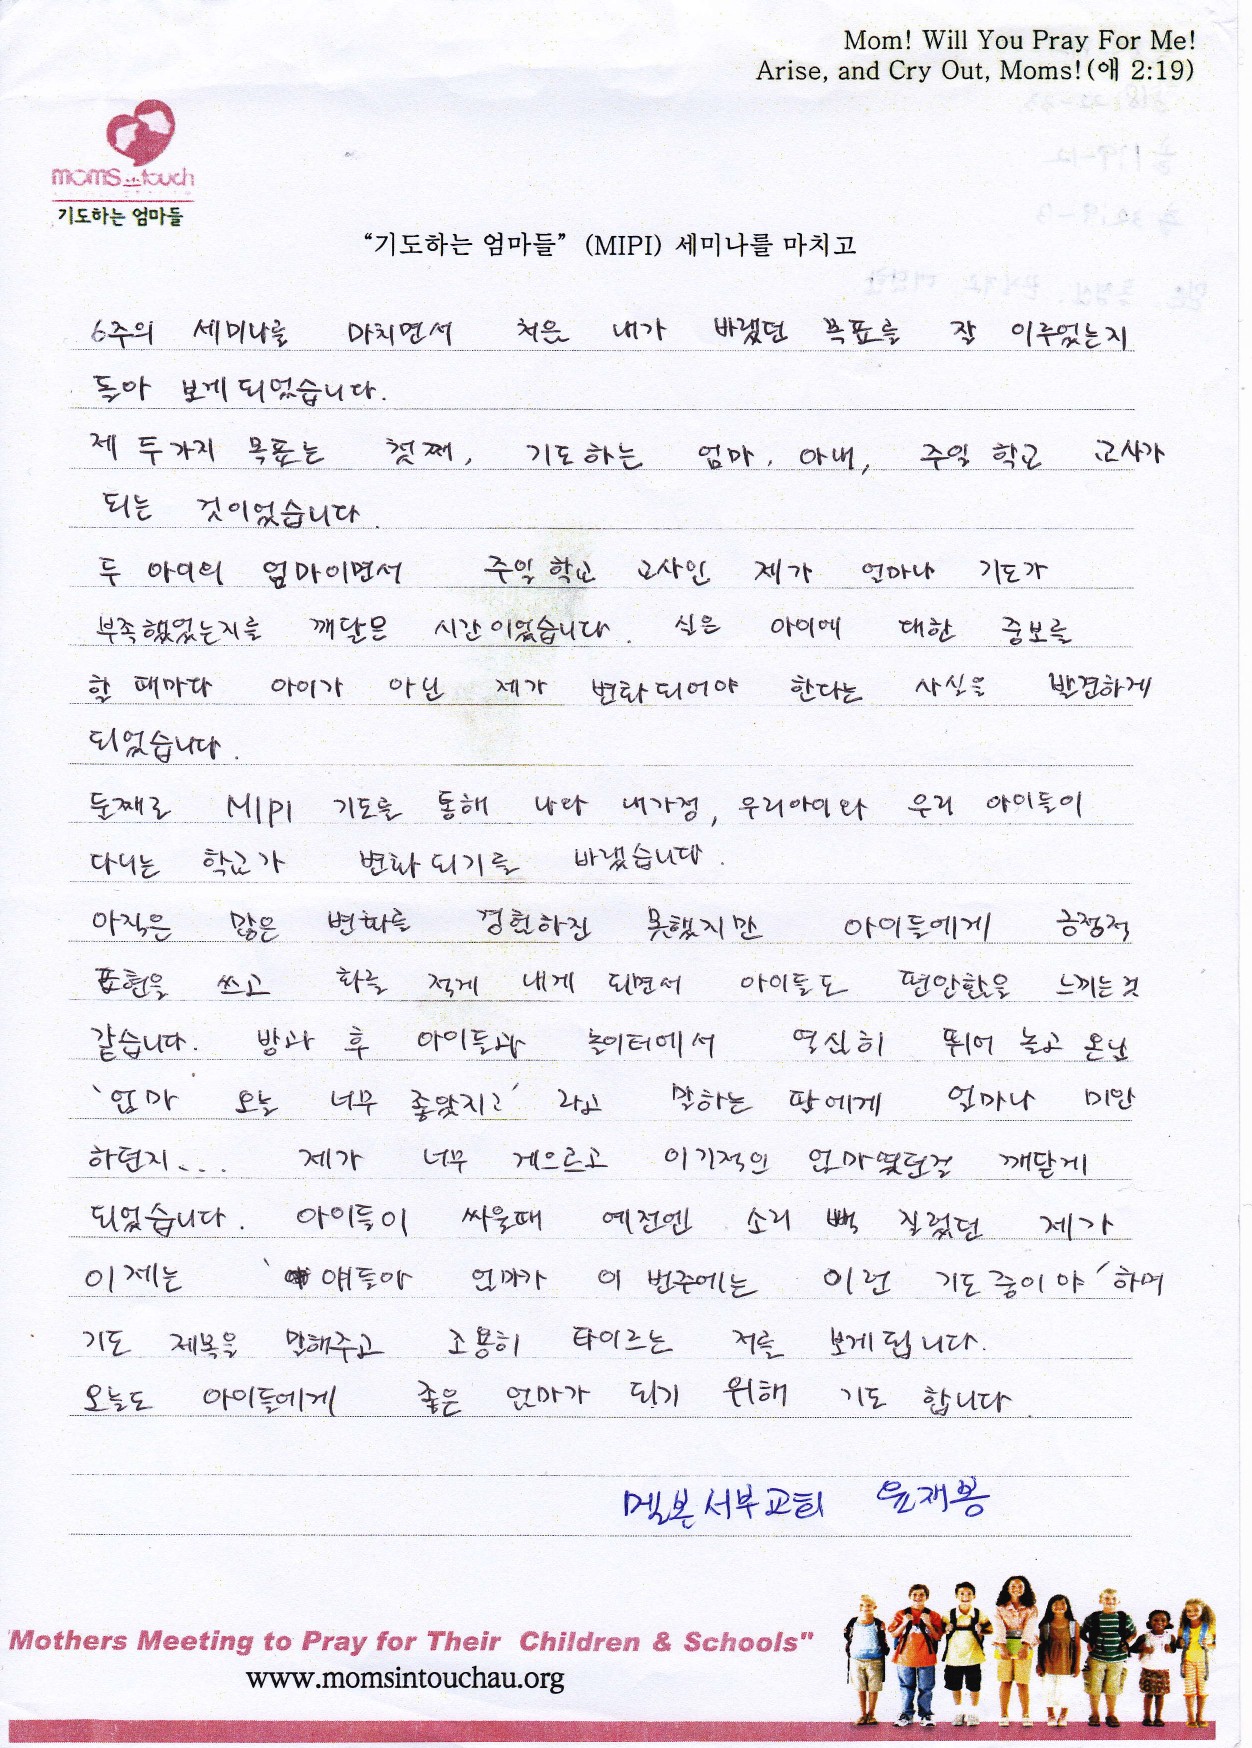 Mom! Will You Pray For Me!
Arise, and Cry Out, Moms!(애 2:19)
moms in touch
기도하는 엄마들
“기도하는 엄마들” (MIPI) 세미나를 마치고
6주의 세미나를 마치면서 처음 내가 바랬던 목표를 잘 이루었는지
돌아 보게 되었습니다.
제 두가지 목표는 첫째, 기도하는 엄마, 아내, 주일 학교 교사가
되는 것이었습니다.
두 아이의 엄마이면서 주일 학교 교사인 제가 얼마나 기도가
부족했었는지를 깨달은 시간이었습니다. 실은 아이에 대한 중보를
할 때마다 아이가 아닌 제가 변화되어야 한다는 사실을 발견하게
되었습니다.
둘째로 MIPI 기도를 통해 나와 내가정, 우리아이와 우리 아이들이
다니는 학교가 변화되기를 바랬습니다.
아직은 많은 변화를 경험하진 못했지만 아이들에게 긍정적
표현을 쓰고 화를 적게 내게 되면서 아이들도 편안함을 느끼는것
같습니다. 방과 후 아이들과 놀이터에서 열심히 뛰어 놀고 온날
‘엄마 오늘 너무 좋았지?’ 라고 말하는 딸에게 얼마나 미안
하던지... 제가 너무 게으르고 이기적인 엄마였던걸 깨닫게
되었습니다. 아이들이 싸울때 예전엔 소리 빽 질렀던 제가
이제는 ‘얘들아 엄마가 이 번주에는 이런 기도중이야’ 하며
기도 제목을 말해주고 조용히 타이르는 저를 보게됩니다.
오늘도 아이들에게 좋은 엄마가 되기 위해 기도 합니다.
멜본서부교회 윤재봉
"Mothers Meeting to Pray for Their Children & Schools"
www.momsintouchau.org